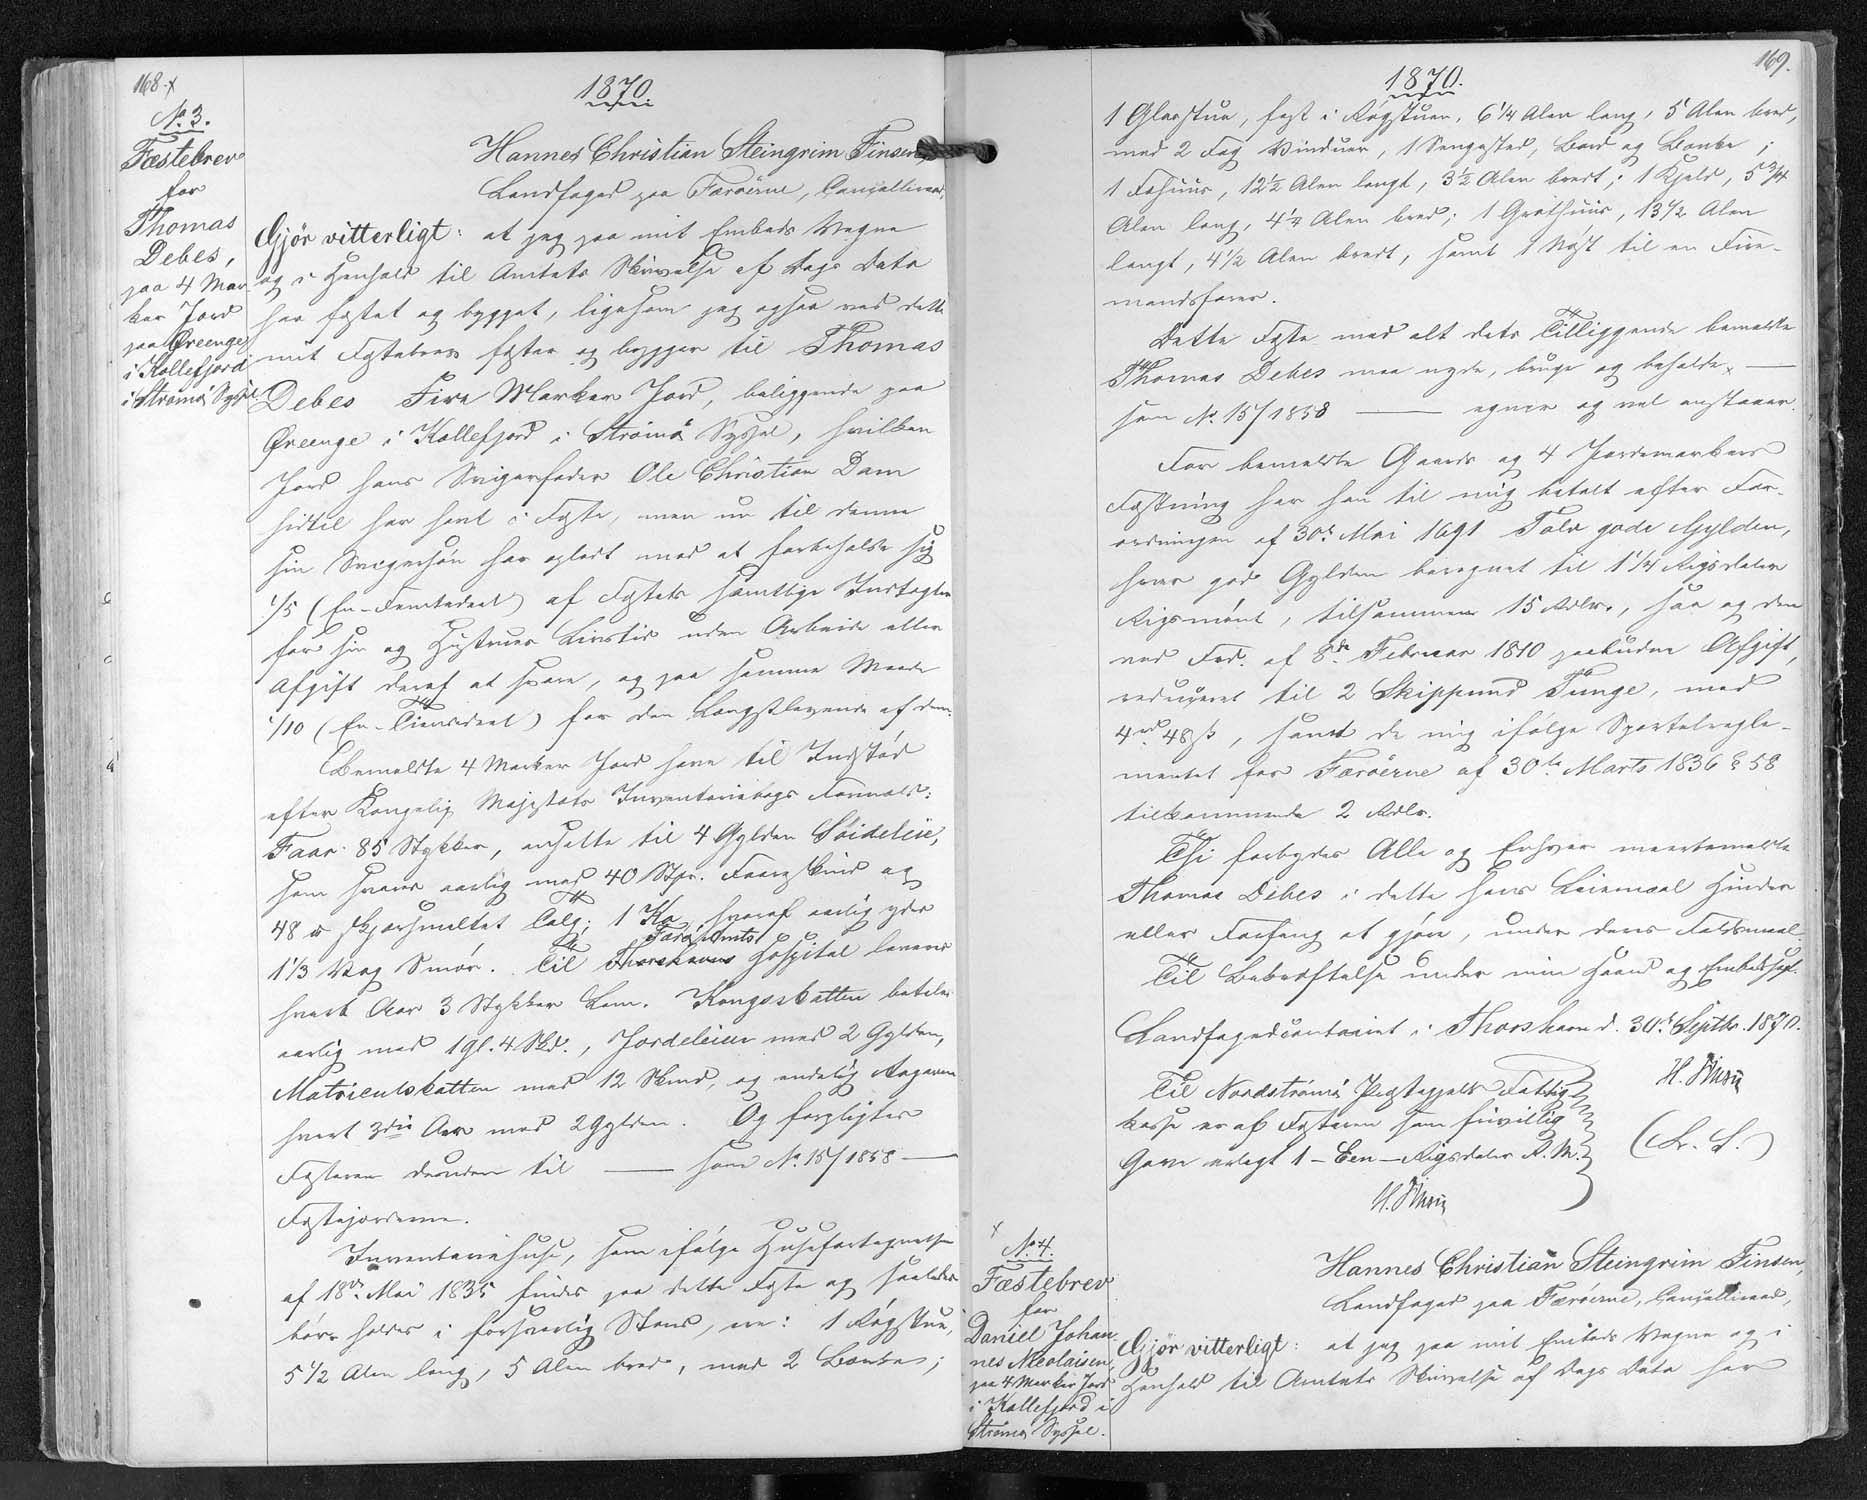 168. x
1870.
No. 3.
Fæstebrev
for
Thomas
Debes,
paa 4 Mar-
ker Jord
paa Øreenge
i Kollefjord
i Strømø Syssel.
Hannes Christian Steingrim Finsen,
Landfoged paa Færøerne, Cancelliraad,
Gjør vitterligt: at jeg paa mit Embeds Vegne
og i Henhold til Amtets Skrivelse af Dags Dato
har fæstet og bygget, ligesom jeg ogsaa ved dette
mit Fæstebrev fæster og bygger til Thomas
Debes Fire Marker Jord, beliggende paa
Øreenge i Kollefjord i Strømø Syssel, hvilken
Jord hans Svigerfader Ole Christian Dam
hidtil har havt i Fæste, men nu til denne
sin Svigersøn har opladt med at forbeholde sig
1/5 (En-Femtedeel) af Fæstets samtlige Indtægter
for sin og Hustrues Livstid uden Arbeide eller
Afgift deraf at svare, og paa samme Maade
1/10 (En-Tiendedeel) for den Længstlevende af dem.
Bemeldte 4 Marker Jord have til Indstød
efter Kongelig Majestæts Inventariebogs Formeld:
Faar 85 Stykker, ansatte til 4 Gylden Søideleie,
som svares aarlig med 40 Stkr. Faareskind og
48 ℔ skjærsmeltet Talg; 1 Ko, hvoraf aarlig ydes
1 1/3 Vog Smør. Til Thorshavns Færø Amts Hospital leveres
hvert Aar 3 Stykker Lam. Kongsskatten betales
aarlig med 1 Gl. 4 Skd., Jordeleien med 2 Gylden,
Matriculskatten med 12 Skind, og endelig Aagaven
hvert 3die Aar med 2 Gylden. Og forpligtes
Fæsteren desuden til — som No. 15/1858 —
Fæstejorderne.
Inventariehuse, som ifølge Husefortegnelse
af 18de Mai 1835 findes paa dette Fæste og saaledes
bør holdes i forsvarlig Stand, ere: 1 Røgstue,
5 1/2 Alen lang, 5 Alen bred, med 2 Bænke;
169.
1870.
1 Glasstue, fast i Røgstuen, 6 1/4 Alen lang, 5 Alen bred,
med 2 Fag Vinduer, 1 Sengested, Bord og Bænke;
1 Fæhuus, 12 1/2 Alen langt, 3 1/2 Alen bredt; 1 Kjeld, 5 3/4
Alen lang, 4 1/2 Alen bred; 1 Grothuus, 13 1/2 Alen
langt, 4 1/2 Alen bredt, samt 1 Nøst til en Fire-
mandsfarer.
Dette Fæste med alt dets Tilliggende bemeldte
Thomas Debes maa nyde, bruge og beholde, —
som No. 15/1858 — egner og vel anstaaer.
For bemeldte Gaards og 4 Jordemarkers
Fæstning har han til mig betalt efter For-
ordningen af 30te Mai 1691 Tolv gode Gylden,
hver god Gylden beregnet til 1 1/4 Rigsdaler
Rigsmønt, tilsammen 15 Rdlr., saa og den
ved Frd. af 8de Februar 1810 paabudne Afgift,
reduceret til 2 Skippund Tunge, med
4 rd 48 ß, samt de mig ifølge Sportelregle-
mentet for Færøerne af 30te Marts 1836 § 58
tilkommende 2 Rdlr.
Thi forbydes Alle og Enhver meerbemeldte
Thomas Debes i dette hans Leiemaal Hinder
eller Forfang at gjøre, under deres Faldsmaal.
Til Bekræftelse under min Haand og Embedssegl.
Landfogedcontoiret i Thorshavn d. 30te Septbr. 1870.
H. Finsen
(L. S.)
Til Nordstrømø Præstegjelds Fattig-
kasse er af Fæsteren som frivillig
Gave erlagt 1 - Een - Rigsdaler R. M.
H. Finsen
x
No. 4.
Fæstebrev
for
Daniel Johan-
nes Nicolaisen,
paa 4 Marker Jord
i Kollefjord i
Strømø Syssel.
Hannes Christian Steingrim Finsen,
Landfoged paa Færøerne, Cancelliraad,
Gjør vitterligt: at jeg paa mit Embeds Vegne og i
Henhold til Amtets Skrivelse af Dags Dato har